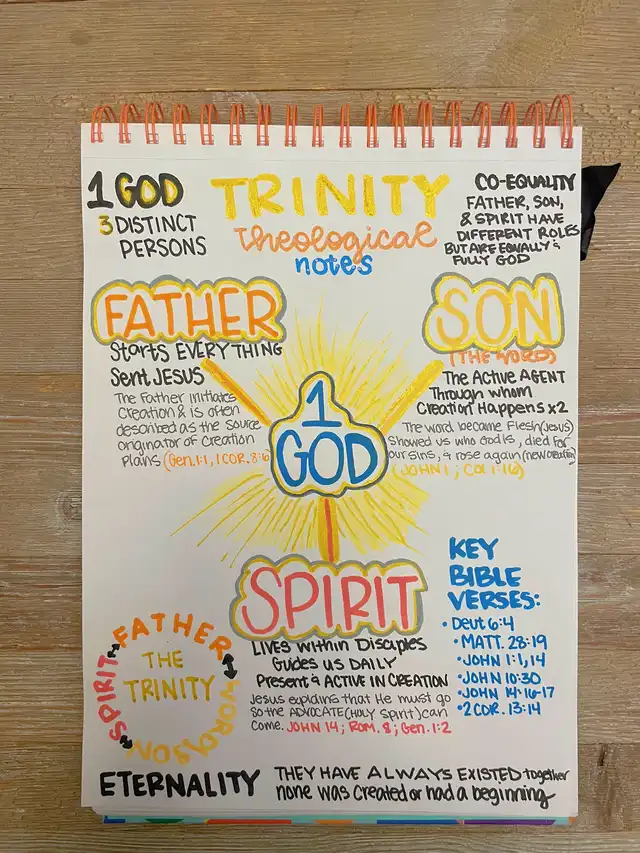 1 GOD
3 DISTINCT
PERSONS
TRINITY
Theological
notes
CO-EQUALITY
FATHER, SON,
& SPIRIT HAVE
DIFFERENT ROLES
BUT ARE EQUALLY &
FULLY GOD
FATHER
Starts EVERYTHING
Sent JESUS
The Father initiates
Creation & is often
described as the source
originator of creation
plans (Gen. 1:1, 1 COR. 8:6)
SON
(THE WORD)
The Active AGENT
Through whom
Creation Happens x2
The word became Flesh (Jesus)
Showed us who God is, died for
our sins, & rose again (new creation)
(JOHN 1; Col 1:16)
1
GOD
SPIRIT
LIVES within Disciples
Guides us DAILY
Present & ACTIVE IN CREATION
Jesus explains that He must go
so the ADVOCATE (HOLY Spirit) can
come. JOHN 14; Rom. 8; Gen. 1:2
KEY
BIBLE
VERSES:
• Deut 6:4
• MATT. 28:19
• JOHN 1:1,14
• JOHN 10:30
• JOHN 14:16-17
• 2 COR. 13:14
FATHER
WORD/SON
SPIRIT
THE
TRINITY
ETERNALITY
THEY HAVE ALWAYS EXISTED together
none was created or had a beginning